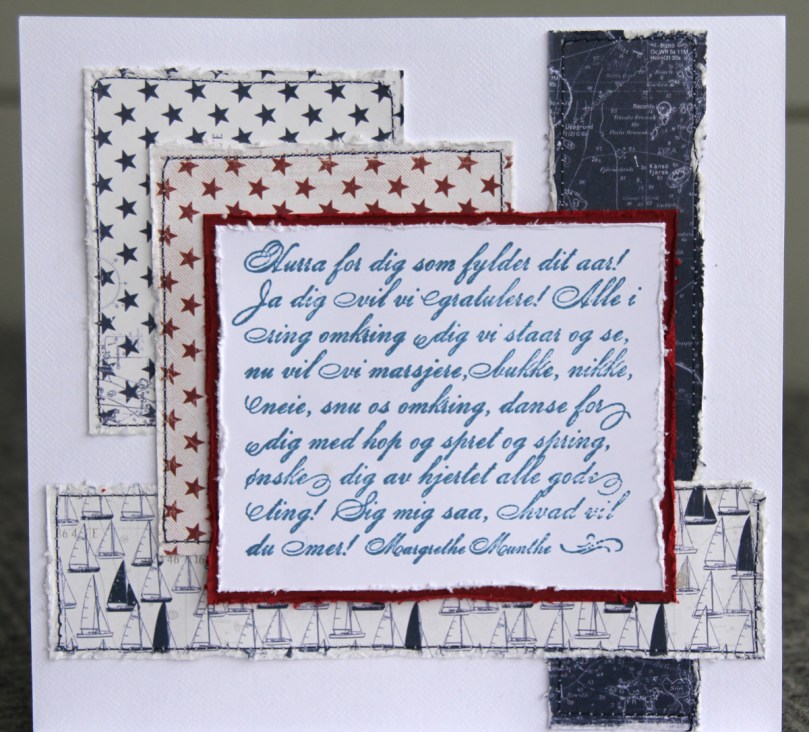 Hurra for dig som fylder dit aar!
Ja dig vil vi gratulere! Alle i
ring omkring dig vi staar og se,
nu vil vi marsjere, bukke, nikke,
neie, snu os omkring, danse for
dig med hop og spret og spring,
ønske dig av hjertet alle gode
ting! Sig mig saa, hvad vil
du mer! Margrethe Munthe